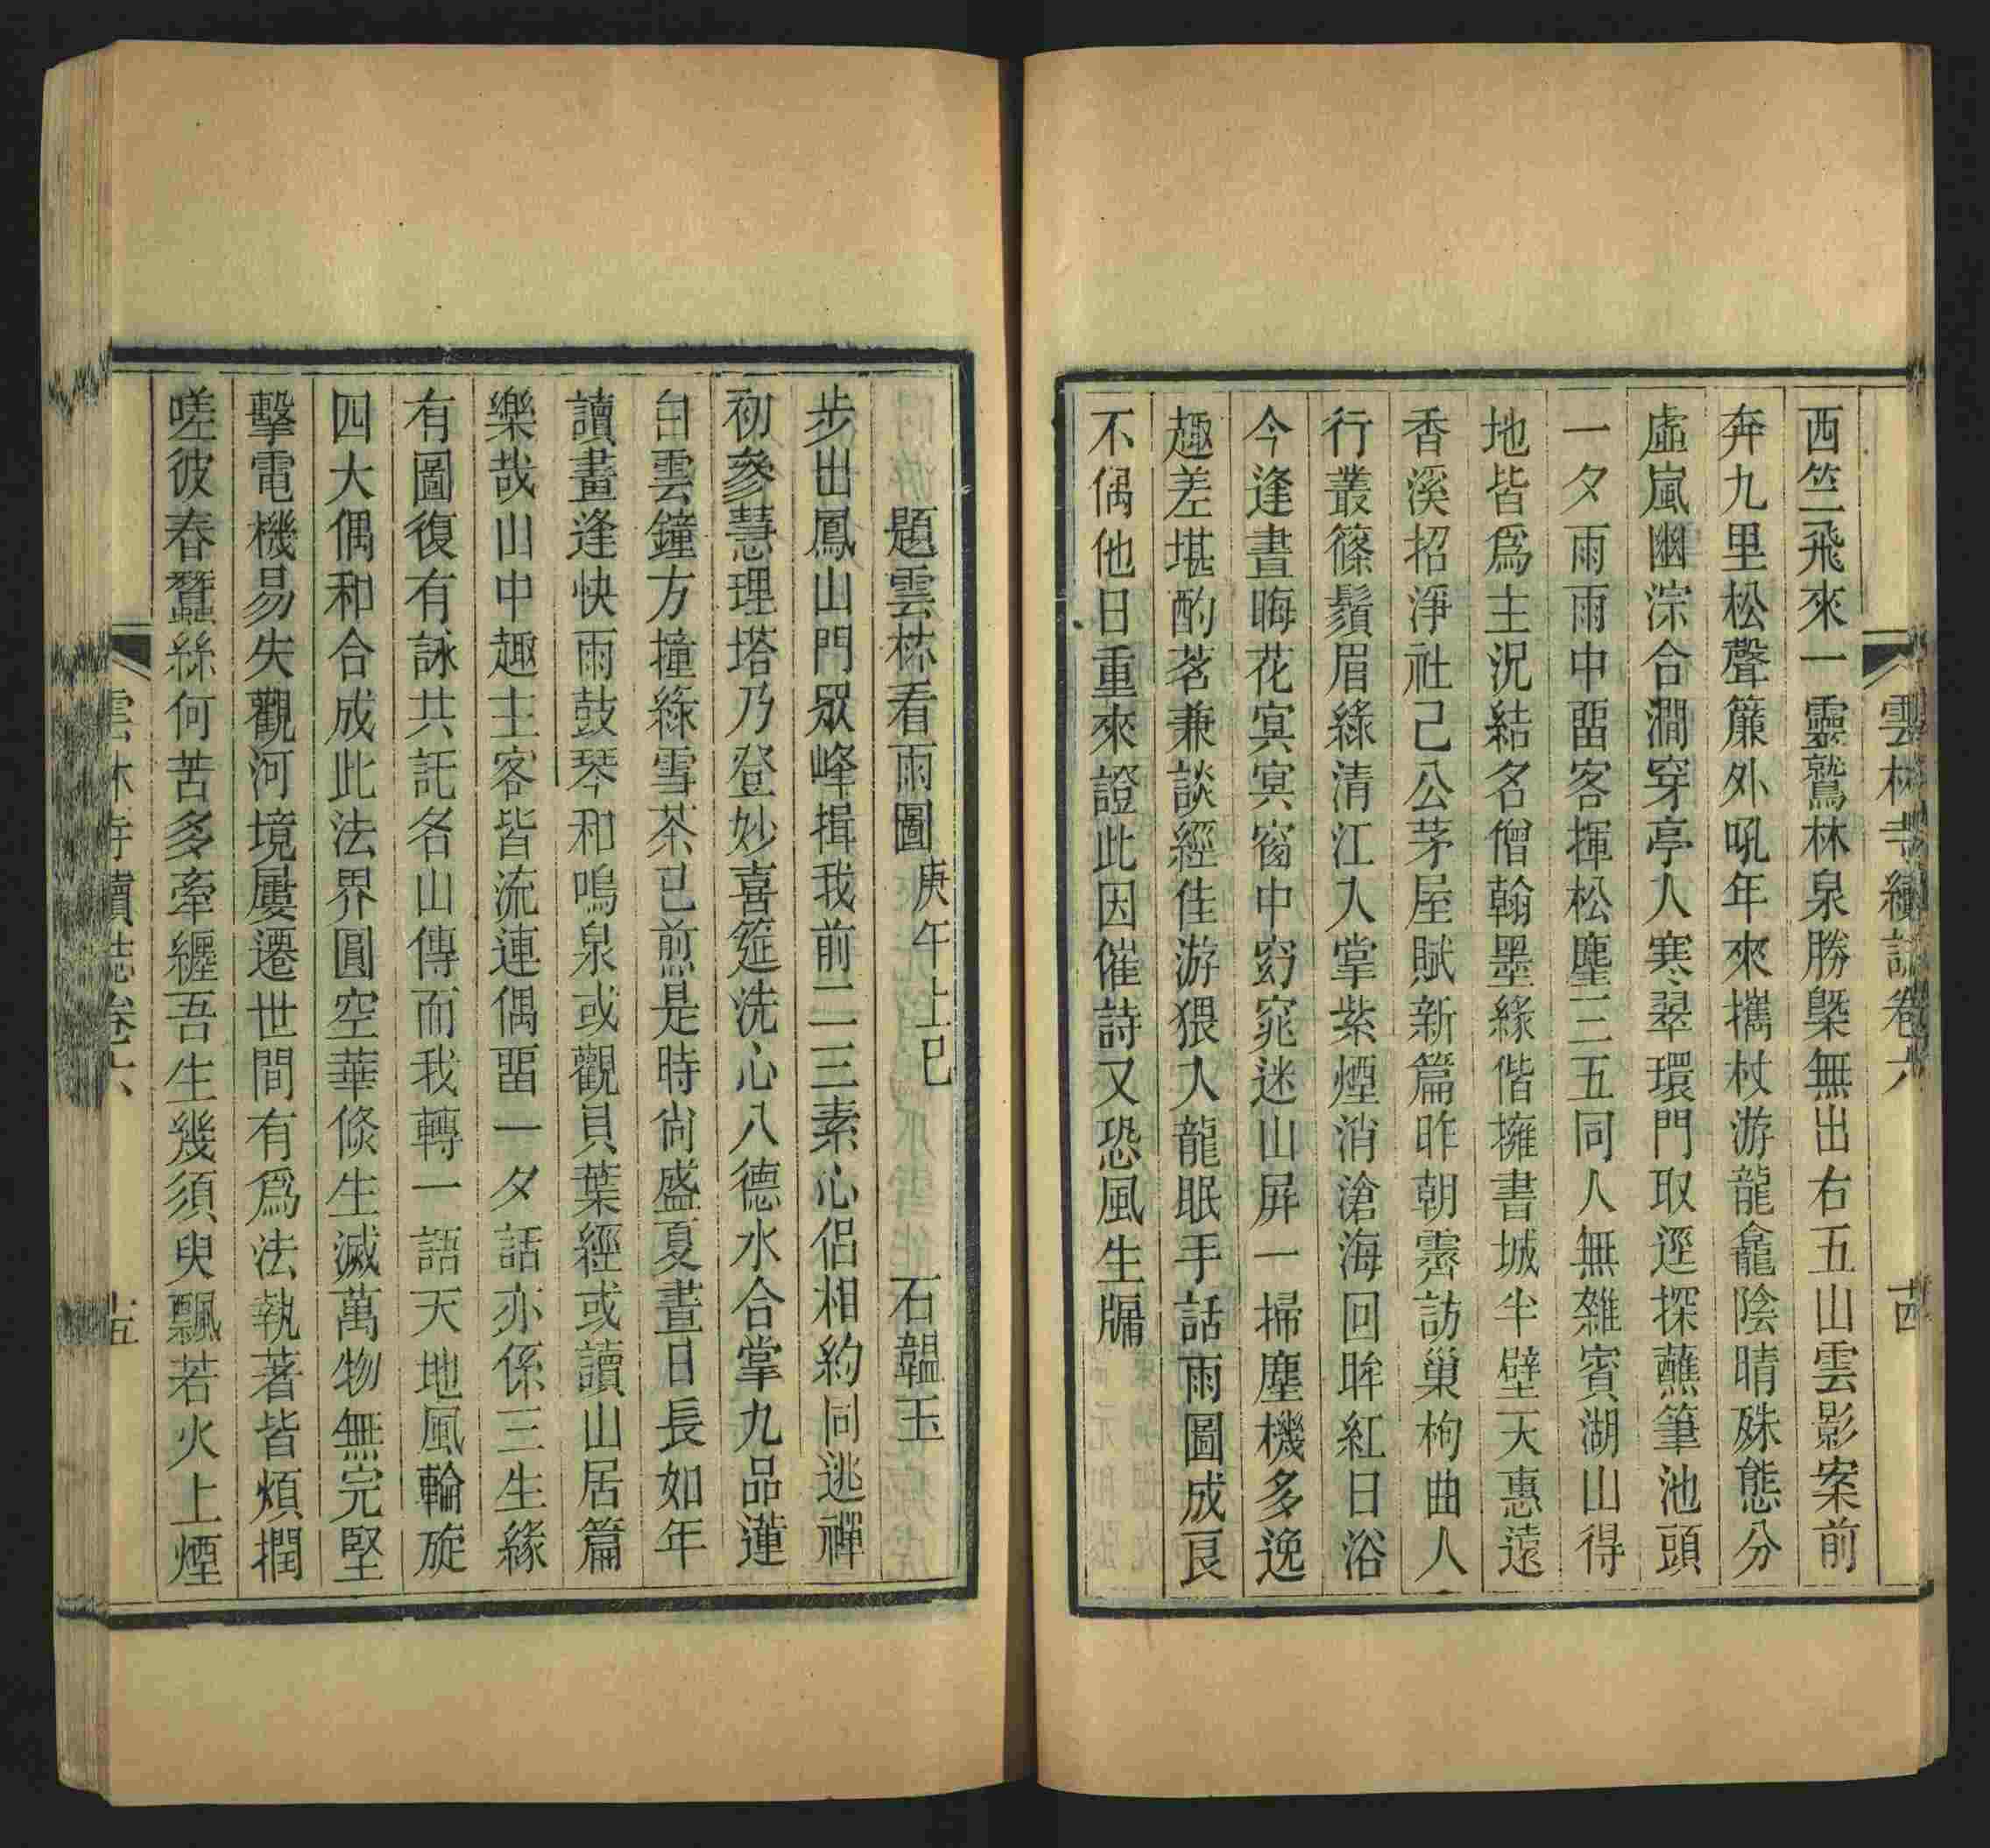 雲林寺續誌卷六 十四
西竺飛來一靈鷲林泉勝槩無出右五山雲影案前
奔九里松聲簾外吼年來攜杖游龍龕陰晴殊態分
虛嵐幽淙合澗穿亭人寒翠環門取逕探蘸筆池頭
一夕雨雨中畱客揮松麈三五同人無雜賓湖山得
地皆爲主況結名僧翰墨緣偕擁書城半壁天惠遠
香溪招淨社己公茅屋賦新篇昨朝霽訪巢枸曲人
行叢篠鬚眉綠清江入掌紫煙消滄海回眸紅日浴
今逢晝晦花冥冥窗中窈窕迷山屏一掃塵機多逸
趣差堪酌茗兼談經佳游猥人龍眠手話雨圖成良
不偶他日重來證此因催詩又恐風生牖
題雲林看雨圖庚午上巳 石韞玉
步出鳳山門眾峰揖我前二三素心侶相約同逃禪
初參慧理塔乃登妙喜筵洗心八德水合掌九品蓮
白雲鐘方撞綠雪茶已煎是時尙盛夏晝日長如年
讀畫逢快雨鼓琴和鳴泉或觀貝葉經或讀山居篇
樂哉山中趣主客皆流連偶畱一夕話亦係三生緣
有圖復有詠共託名山傳而我轉一語天地風輪旋
四大偶和合成此法界圓空華倐生滅萬物無完堅
擊電機易失觀河境屢遷世間有爲法執著皆煩撋
嗟彼春蠶絲何苦多牽纏吾生幾須臾飄若火上煙
雲林寺續誌卷六 十五